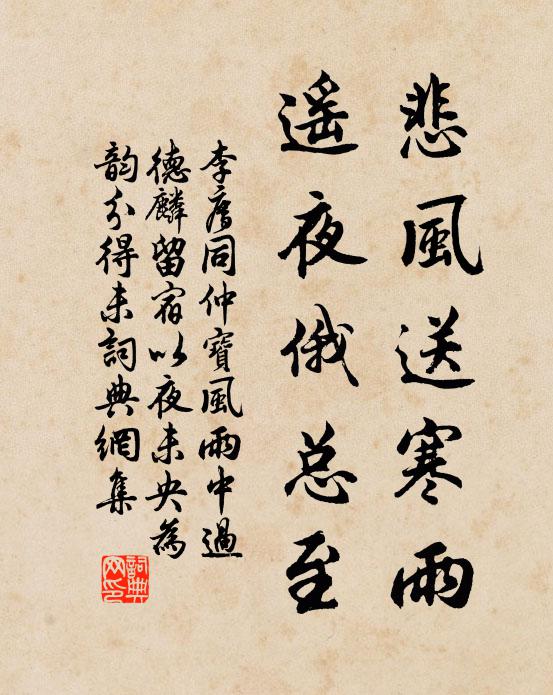 悲風送寒雨
遥夜俄总至
李廌同仲寶風雨中過
德麟留宿以夜未央為
韵分得未詞典網集
詞典网印